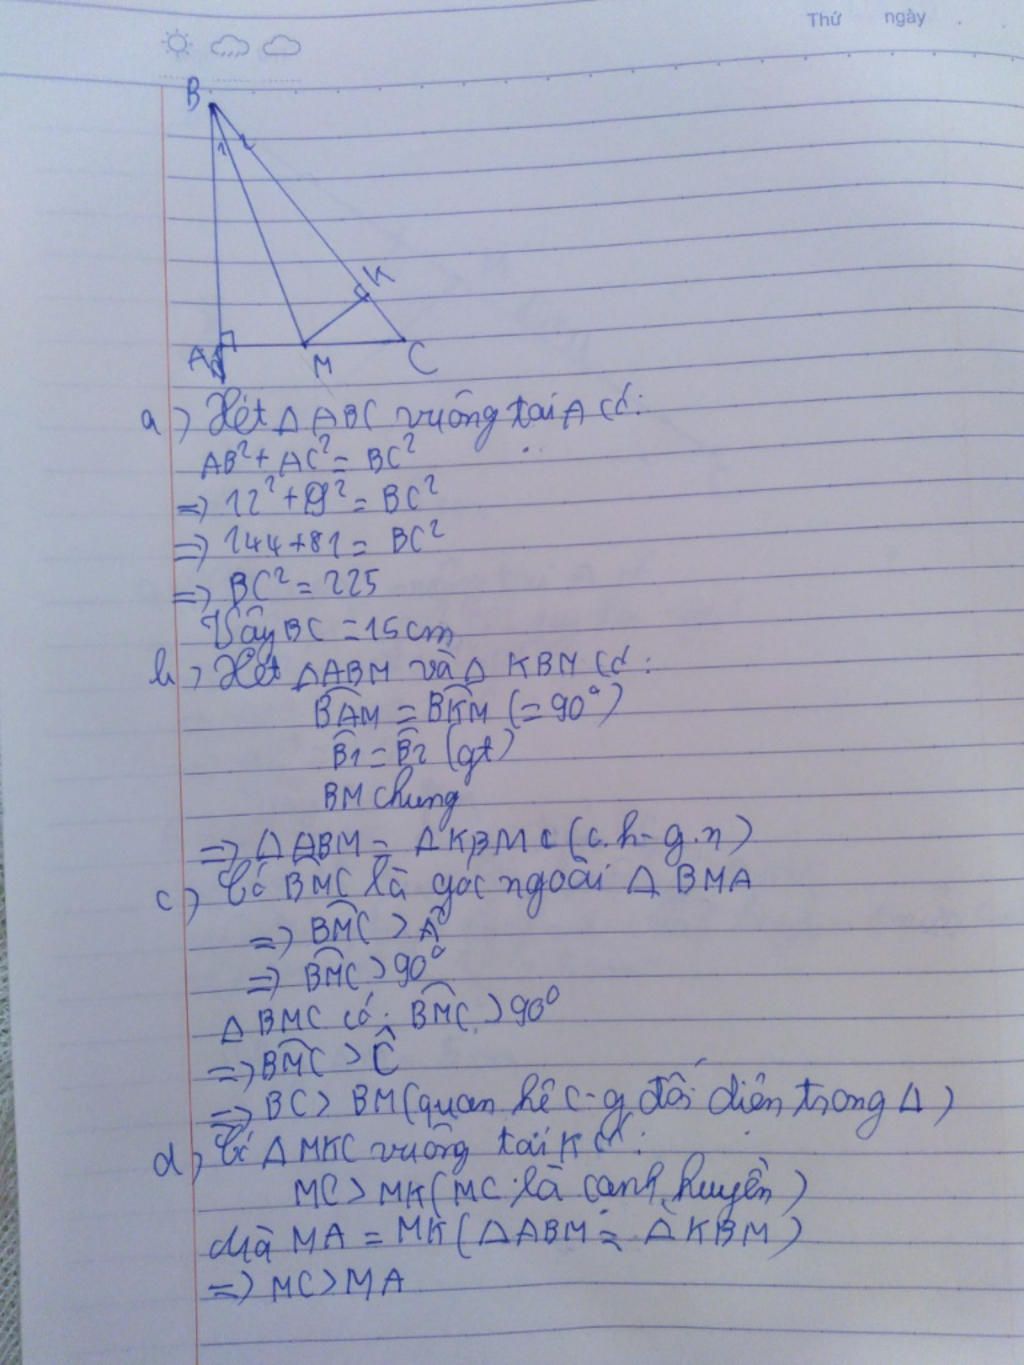 Thứ ngày
B
1 2
K
A M C
a) Xét Δ ABC vuông tại A có:
AB² + AC² = BC²
=> 12² + 9² = BC²
=> 144 + 81 = BC²
=> BC² = 225
Vậy BC = 15 cm
b) Xét Δ ABM và Δ KBM có:
BAM̂ = BKM̂ (= 90°)
B̂1 = B̂2 (gt)
BM chung
=> Δ ABM = Δ KBM (c.h - g.n)
c) Có BMĈ là góc ngoài Δ BMA
=> BMĈ > Â
=> BMĈ > 90°
Δ BMC có: BMĈ > 90°
=> BMĈ > Ĉ
=> BC > BM (quan hệ c-g đối diện trong Δ)
d) Có Δ MKC vuông tại K có:
MC > MK (MC là cạnh huyền)
mà MA = MK (Δ ABM = Δ KBM)
=> MC > MA